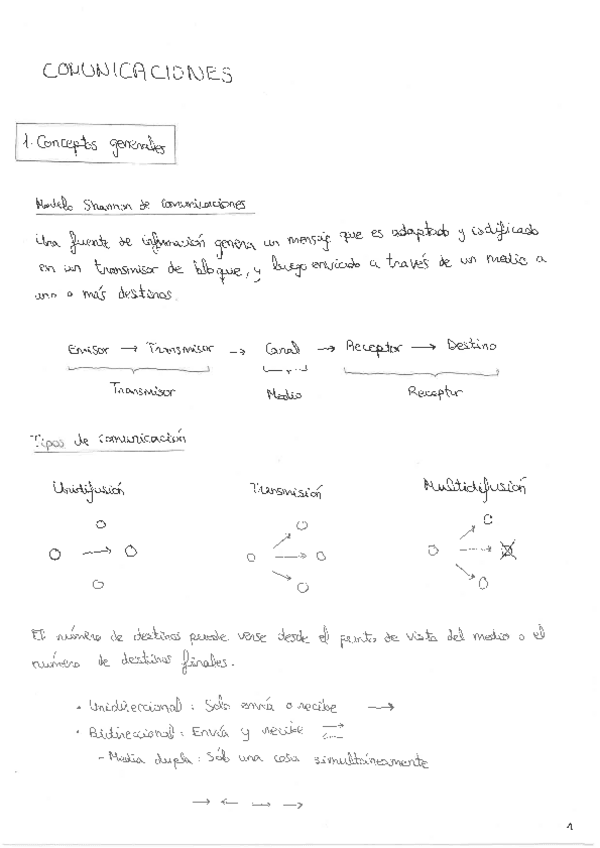 COMUNICACIONES
1. Conceptos generales
Modelo Shannon de comunicaciones
Una fuente de información genera un mensaje que es adaptado y codificado
en un transmisor de bloque, y luego enviado a través de un medio a
uno o más destinos.
Emisor → Transmisor → Canal → Receptor → Destino
Transmisor Medio Receptor
Tipos de comunicación
Unidifusión Transmisión Multidifusión
El número de destinos puede verse desde el punto de vista del medio o el
número de destinos finales.
• Unidireccional: Solo envía o recibe →
• Bidireccional: Envía y recibe
- Media dupla: Sólo una cosa simultáneamente
→ ← → →
1